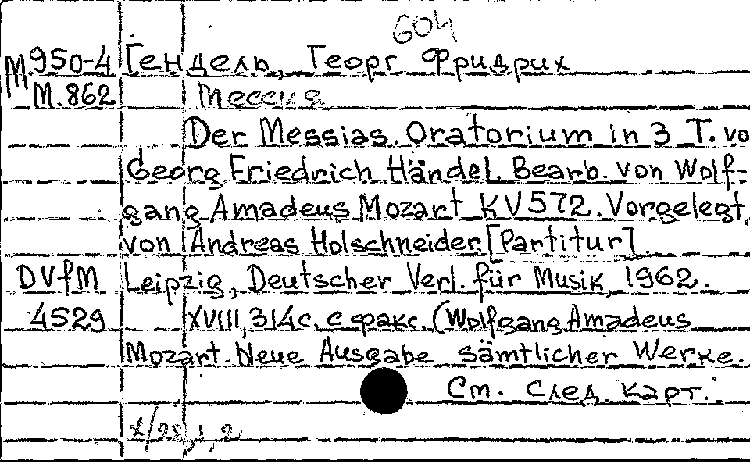 604
М 950-4 Гендель, Георг Фридрих
М.862 Мессия
Der Messias. Oratorium in 3 T. vo
Georg Friedrich Händel. Bearb. von Wolf-
gang Amadeus Mozart KV 572. Vorgelegt
von Andreas Holschneider [Partitur]
DVfM Leipzig, Deutscher Verl. für Musik, 1962.
4529 XVIII, 314 с. с факс. (Wolfgang Amadeus
Mozart. Neue Ausgabe sämtlicher Werke.
См. след. карт.